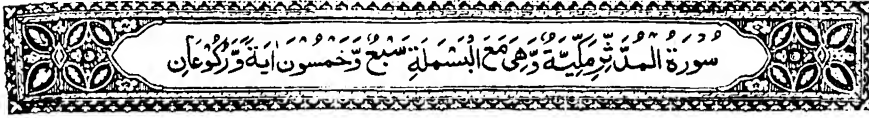 سُورَةُ الْمُدَّثِّرِ مَكِّيَّةٌ وَّهِيَ مَعَ الْبَسْمَلَةِ سَبْعٌ وَّخَمْسُوْنَ اٰيَةً وَّرُكُوْعَانِ